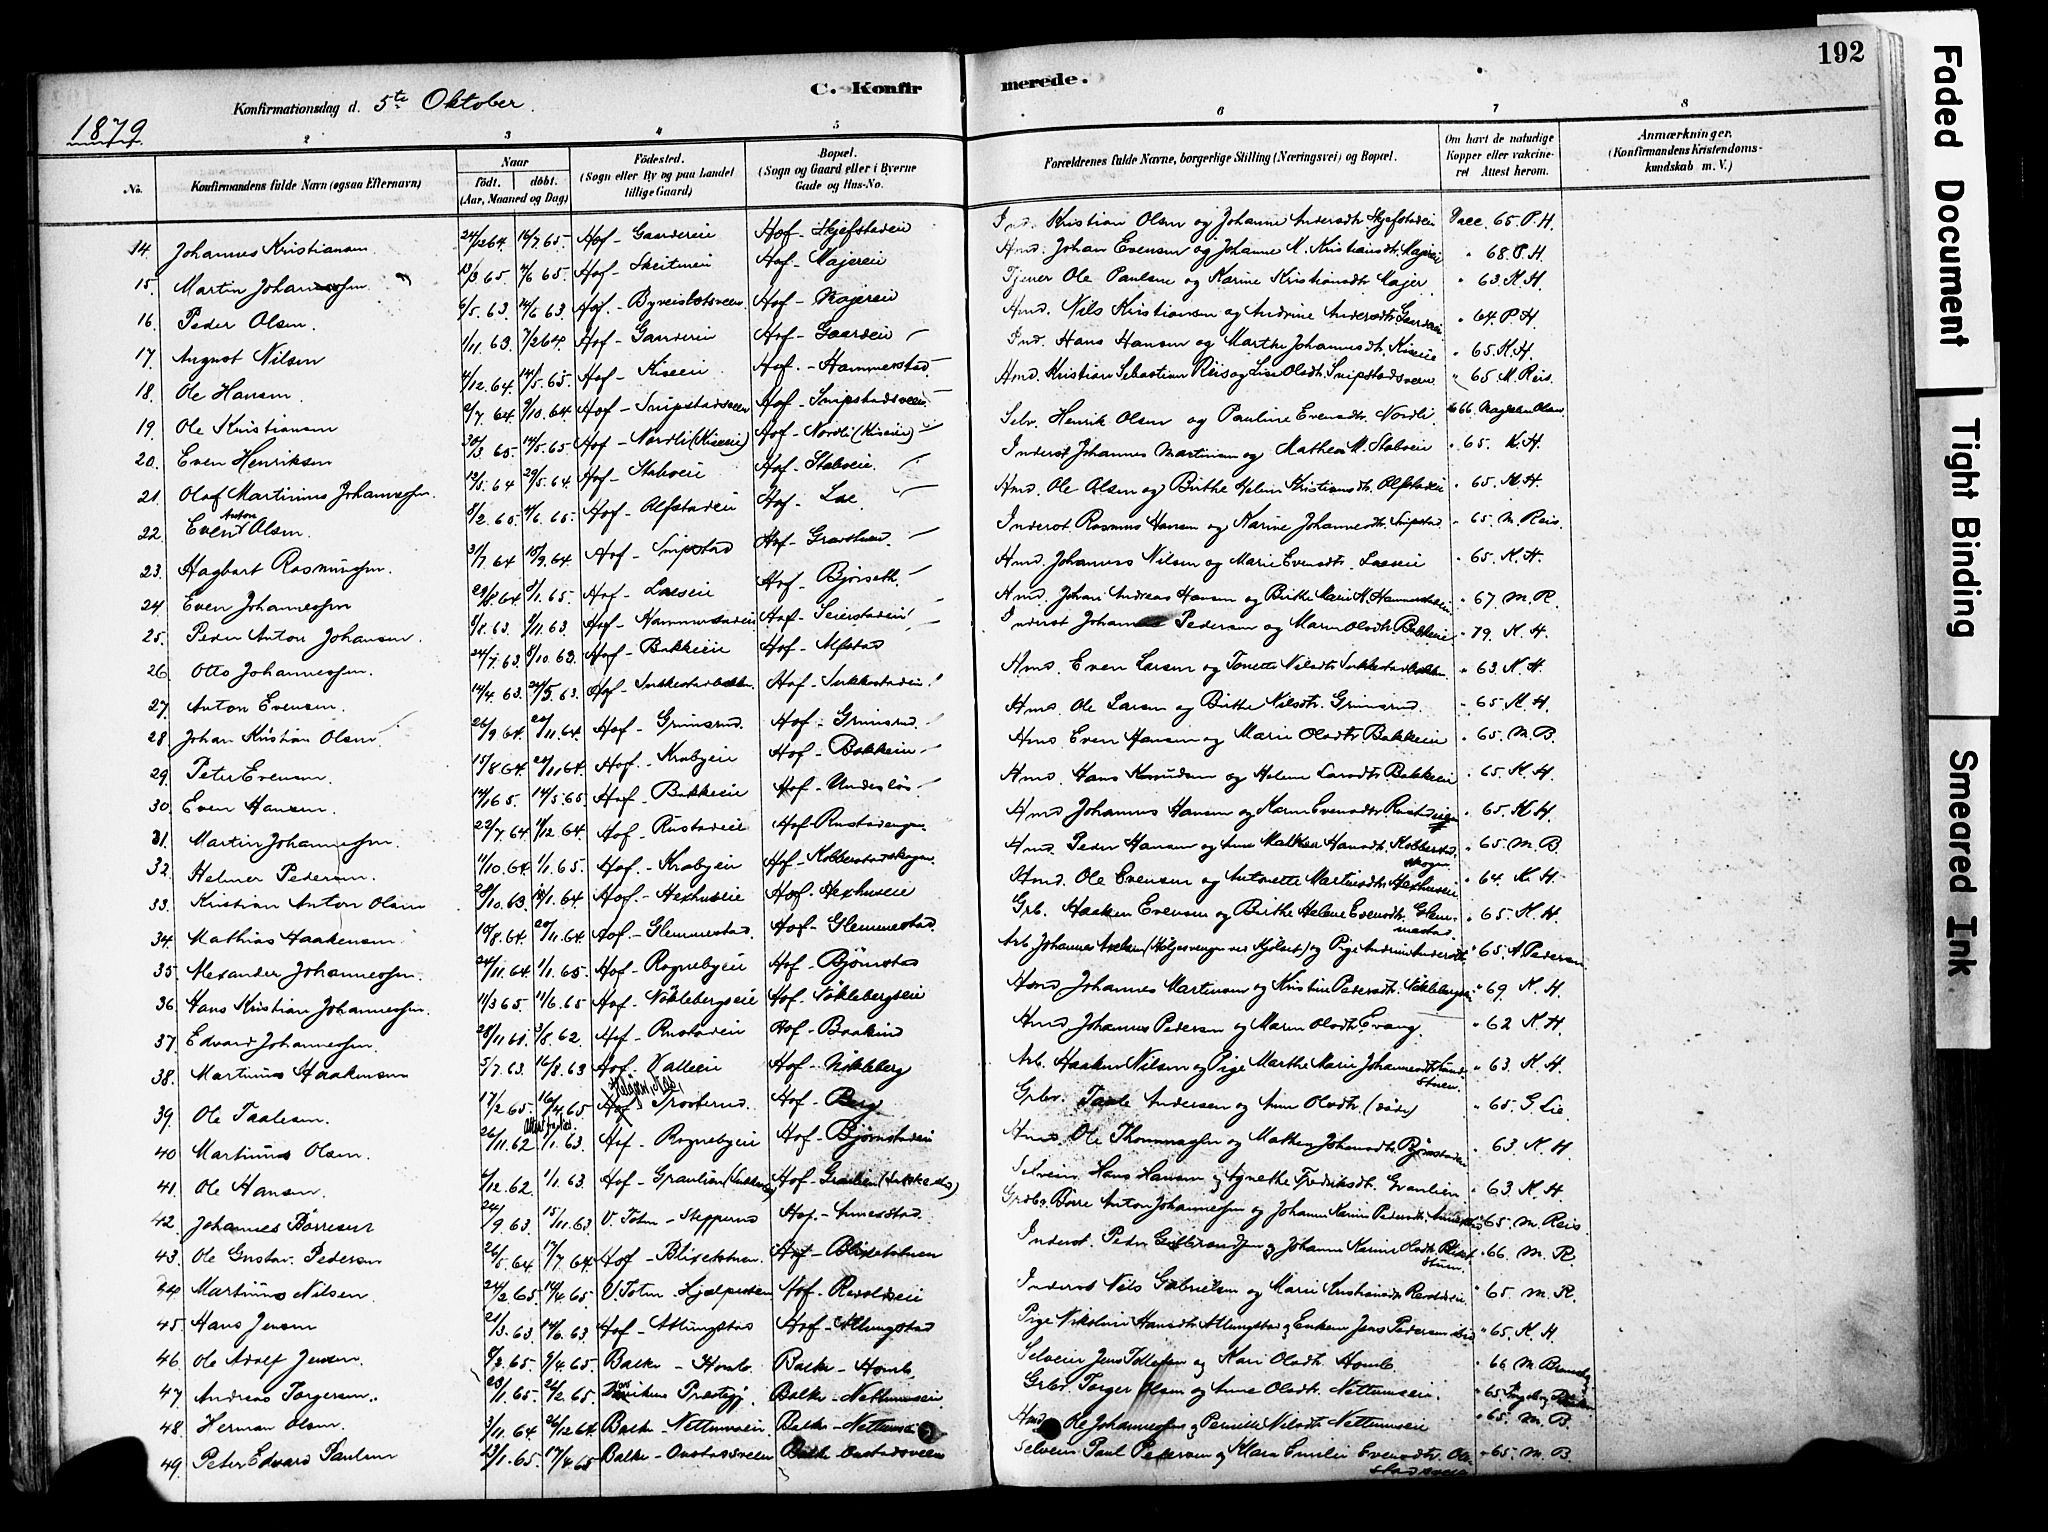 192
Faded Document
Tight Binding
Smeared Ink
C. Konfirmerede.
Konfirmationsdag d. 5te Oktober.
1879
2 3 4 5 6 7 8
No.
Konfirmandens fulde Navn (ogsaa Efternavn)
Naar
födt. döbt.
(Aar, Maaned og Dag)
Födested.
(Sogn eller By og paa Landet tillige Gaard)
Bopæl.
(Sogn og Gaard eller i Byerne Gade og Hus-No.
Forældrenes fulde Navne, borgerlige Stilling (Næringsvei) og Bopæl.
Om havt de naturlige Kopper eller vakcineret Attest herom.
Anmærkninger.
(Konfirmandens Kristendomskundskab m. V.)
14. Johannes Kristiansen 24/12 64. 16/7 65. Hof - Gaardeiei Hof - Skjefstadeie Ind. Kristian Olsen og Johanne Andersdt. Skjefstadeie Vacc. 65. P. H.
15. Martin Johannessen 13/3 65. 4/6 65. Hof - Hof - Majereie Hmd. Johan Evensen og Johanne M. Kristiansdt. " 68. P. H.
16. Peder Olsen. 6/5. 63. 14/6 63. Hof - Hof - Majereie Tjener Ole Paulsen og Karine Kristiansdt. Majer " 63. K. H.
17. August Nilsen 1/11. 63. 7/2 64. Hof - Gaardeie Hof - Gaardeie Hmd. Nils Kristiansen og Andrine Andersdt. Gaardeie " 64. P. H.
18. Ole Hansen. 4/12. 64. 14/5. 65. Hof - Kiseeie Hof - Hammerstad Ind. Hans Hansen og Marthe Johannesdt. Kiseeie " 65. K. H.
19. Ole Kristiansen 2/7. 64. 9/10. 64. Hof - Snipstadsveen Hof - Snipstadsveen Hmd. Kristian Sebastian Reis og Lise Olsdt. Snipstadsveen " 65 M. Reis.
20. Even Henriksen 30/3. 65. 14/5. 65. Hof - Nordli (Kiseeie) Hof - Nordli (Kiseeie) Selv. Henrik Olsen og Pauline Evensdt. Nordli 66. Olsen
21. Olaf Martinius Johannessen. 12/5. 64 29/5. 64. Hof - Stabveie Hof - Stabveie. Inderst Johannes Martinsen og Mathea M. Stabveie " 65. K. H.
22. Even Anton Olsen. 8/2. 65. 4/6. 65. Hof - Alfstadeie Hof - Lae. Hmd. Ole Olsen og Birthe Helene Kristiansdt. Alfstadeie " 65. K. H.
23. Hagbart Rasmussen. 31/7. 64 18/9. 64. Hof - Snipstad Hof - Inderst Rasmus Hansen og Karine Johannesdt. Snipstad " 65. M. Reis.
24. Even Johannessen 29/8. 64 8/1. 65. Hof - Laeeie Hof - Bjørseth. Hmd. Johannes Nilsen og Marie Evensdt. Laeeie " 65. K. H.
25. Peder Anton Johansen. 9/8. 63. 1/11. 63. Hof - Hammerstadeie Hof - Seierstadeie Hmd. Johan Andreas Hansen og Birthe Marie H. Hammerstadeie " 67. M. R.
26. Otto Johannessen. 24/7. 63. 8/10. 63. Hof - Bakkeeie Hof - Alfstad Inderst Johannes Pedersen og Maren Olsdt. Bakkeeie " 79. K. H.
27. Anton Evensen. 14/4. 63. 24/5. 63. Hof - Hof - Sukkestadeie Hmd. Even Larsen og Tonette Nilsdt. " 63. K. H.
28. Johan Kristian Olsen 26/9. 64. 20/11. 64. Hof - Grimsrud. Hof - Grimsrud. Hmd. Ole Larsen og Birthe Nilsdt. Grimsrud. " 65. K. H.
29. Peter Evensen. 15/8. 64. 20/11. 64. Hof. - Krabyeie Hof - Bakkeeie Hmd. Even Hansen og Marie Olsdt. Bakkeeie " 65. M. B.
30. Even Hansen. 14/1 65. 14/5. 65 Hof - Bakkeeie Hof - Undesløs Hmd. Hans Knudsen og Helene Larsdt. Bakkeeie " 65. K. H.
31. Martin Johannessen. 22/7. 64. 4/12. 64. Hof - Rustadeie Hof - Rustadengen. Hmd Johannes Hansen og Karen Evensdt. " 65. K. H.
32. Helmer Pedersen. 11/10. 64. 1/1. 65. Hof. - Krabyeie Hof - Kobberstadskogen. Hmd. Peder Hansen og Anne Mathea Hansdt. Kobberstadskogen " 65. M. B.
33. Kristian Anton Olsen 29/10. 63. 14/1. 64. Hof. - Hexhuseie Hof - Hexhuseie Hmd. Ole Evensen og Antonette Martinsdt. Hexhuseie " 64. K. H.
34. Mathias Haakensen. 10/8. 64. 20/11. 64. Hof. - Glemmestad. Hof - Glemmestad Grb. Haaken Evensen og Birthe Helene Evensdt. Glemmestad. " 65. K. H.
35. Alexander Johannessen. 24/11. 64. 1/1. 65. Hof - Rognebyeie Hof - Bjørnstad Arb. Johannes Axelsen og Pige Andrine Andersdt. " 65. A Pedersen
36. Hans Kristian Johannessen. 11/3 65. 11/6. 65 Hof - Nöklebergseie Hof - Nöklebergseie Hmd Johannes Martinsen og Kristine Pedersdt. " 69. K. H.
37. Edvard Johannessen. 28/11. 61. 3/8. 62. Hof - Rustadeie Hof - Hmd Johannes Pedersen og Maren Olsdt. Evang. " 62 K. H.
38. Martinus Haakensen 5/7. 63. 16/8. 63 Hof - Valleeie Hof - Nökleberg Arb. Haaken Nilsen og Pige Marthe Marie Johannesdt. " 63. K. H.
39. Ole Taalesen. 17/2. 65. 16/4. 65 Hof Hof - Berg Grbr. Taale Andersen og Anne Olsdt. (döde) " 65. G. Lie
40 Martinus Olsen. 26/11. 62 1/1. 63. Hof - Rognebyeie Hof - Bjørnstadeie Hmd. Ole Thommassen og Mathea Johansdt. Bjørnstadeie " 63. K. H.
41. Ole Hansen. 4/12. 62. 1/1. 63. Hof - Granlien Hof - Granlien Selveier Hans Hansen og Agnethe Fredriksdt. Granlien " 63. K. H.
42. Johannes Börresen 24/9. 63. 15/11. 63 V. Toten - Stepperud Hof. - Annestad. Grdbr. Börre Anton Johannessen og Johanne Karine Pedersdt. Annestad " 65. M. Reis
43. Ole Gustav. Pedersen 26/5. 64. 17/7. 64. Hof - Blixestuen. Hof - Blixestuen Inderst. Peder Gulbrandsen og Johanne Karine Olsdt. " 66. M. R.
44 Martinus Nilsen. 24/2. 65. 14/4. 65 V. Toten - Hof - Revoldseie Inderst Nils Gabrielsen og Marie Kristiansdt. Revoldseie. " 65. M. R.
45. Hans Jensen 21/3. 63. 14/6. 63 Hof - Allungstad Hof - Allungstad Pige Nikoline Hansdt. Allungstad og Enkem. Jens Pedersen " 65. K. H.
46. Ole Adolf Jensen. 8/2. 65. 9/4. 65. Balke - Homb. Balke - Homb. Selveier Jens Tollefsen og Kari Olsdt. Homb. " 66 M.
47. Andreas Torgersen. 23/1. 65. 26/2. 65. Præstegj. Balke - Nettumseie. Grbr. Torger Olsen og Anne Olsdt. Nettumseie. " 65.
48. Herman Olsen 3/11. 64 26/12 64. Balke - Nettumseie Balke - Nettums Hmd. Ole Johannessen og Pernille Nilsdt. Nettumseie " 65. M. B.
49. Peter Edvard Paulsen 23/1. 65. 17/4 65 Balke - Balke - Selveier Paul Pedersen og Karen Emilie Evensdt. " 65. M. B.